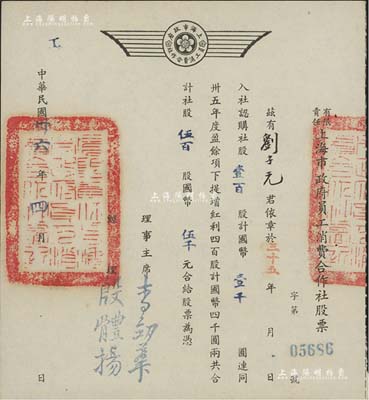 上海陽明拍賣
上海市政府
員工消費合作社
有限責任上海市政府員工消費合作社股票
字第05686號
茲有劉子元君依章於三十五年 月 日
入社認購社股壹百股計國幣壹千圓連同
卅五年度盈餘項下提增紅利四百股計國幣四千圓兩共合
計社股伍百股國幣伍千元合給股票為憑
理事主席
經理殷體揚
中華民國卅六年四月 日